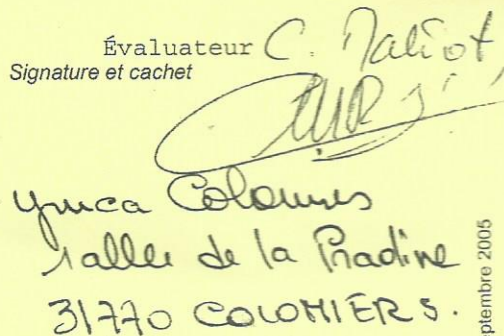 Évaluateur C.
Signature et cachet
ymca Colomiers
1 allée de la Pradine
31770 COLOMIERS.
ptembre 2005